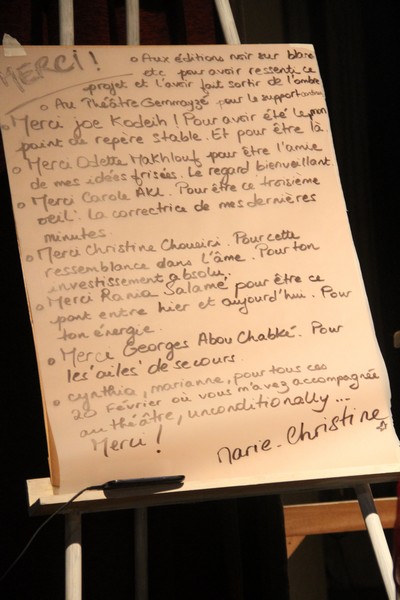 MERCI !
o Aux éditions noir sur blanc
etc pour avoir ressenti ce
projet et l'avoir fait sortir de l'ombre
o Au Théâtre Gemmayzé pour le support
o Merci joe Kodeih ! Pour avoir été le
point de repère stable. Et pour être là.
o Merci Odette Makhlouf pour être l'amie
de mes idées frisées. Le regard bienveillant.
o Merci Carole AKL. Pour être ce troisième
œil : la correctrice de mes dernières
minutes.
o Merci Christine Choueiri. Pour cette
ressemblance dans l'âme. Pour ton
investissement absolu.
o Merci Rania Salamé pour être ce
pont entre hier et aujourd'hui. Pour
ton énergie.
o Merci Georges Abou Chabké. Pour
les 'ailes' de secours.
o cynthia, marianne, pour tous ces
20 Février où vous m'avez accompagnée
au théâtre, unconditionally...
Merci !
Marie-Christine